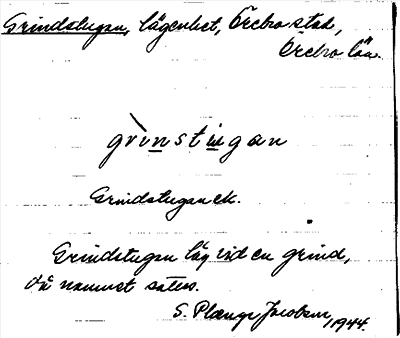 Grindstugan, lägenhet, Örebro stad,
Örebro län.
grìnstu̲gan
Grindstugan ek.
Grindstugan låg vid en grind,
då namnet sattes.
S. Plænge Jacobson, 1944.